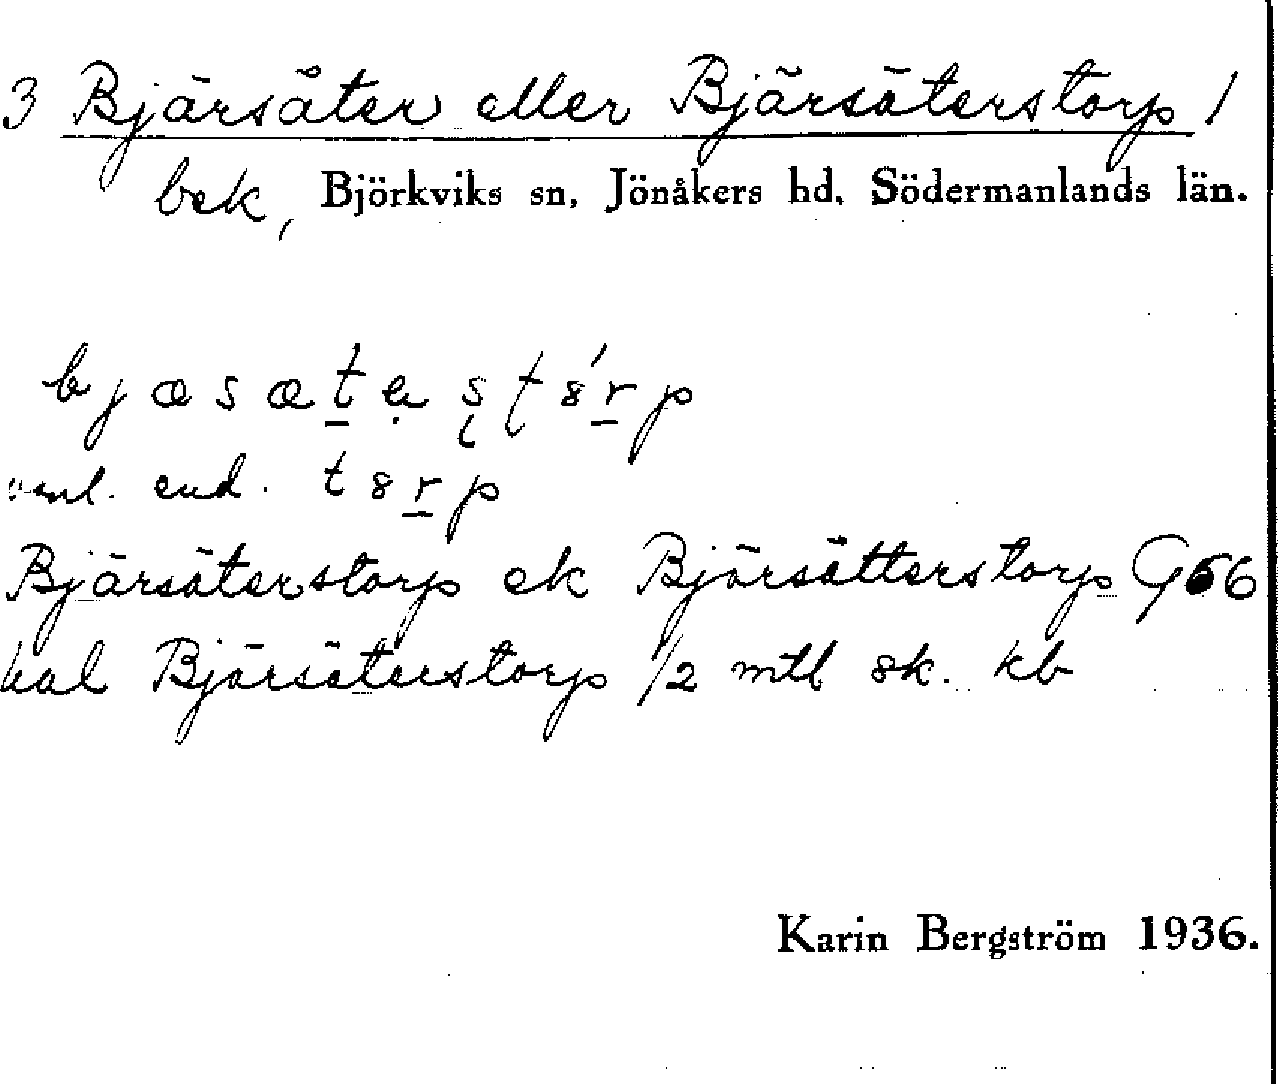 3 Bjärsäter eller Bjärsäterstorp 1
bek, Björkviks sn, Jönåkers hd, Södermanlands län.
bjæsæte ştȣ́rp
vanl. end. tȣrp
Bjärsäterstorp ek Bjärsätterstorp G56
hal Bjärsäterstorp 1/2 mtl sk. kb
Karin Bergström 1936.